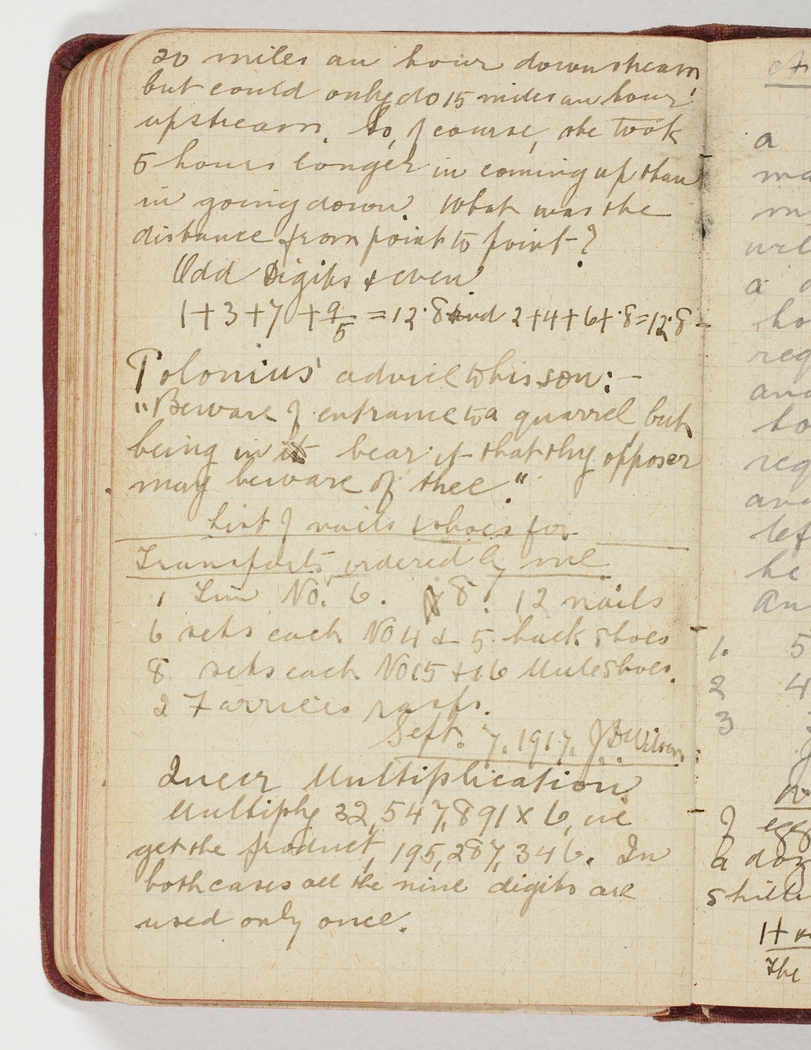 20 miles an hour downstream,
but could only do 15 miles an hour
upstream. So, of course, she took
5 hours longer in coming up than
in going down. What was the
distance from point to point?
Odd Digits & even
1+3+7+9/5 = 12·8 and 2+4+6+·8=12·8
Polonius' advice to his son:-
"Beware of entrance to a quarrel, but
being in it bear it that thy opposer
may beware of thee."
List of nails & shoes for
Transports ordered by me
1 Tin No. 6. 8. 12 nails
6 sets each No 4 & 5 hack shoes
8 sets each No 15 & 16 Mule shoes.
2 Farriers rasps.
Sept. 7. 1917. J B Wilson
Queer Multiplication
Multiply 32,547,891 x 6, we
get the product, 195,287,346. In
both cases all the nine digits are
used only once.
a
a
req
and
req
and
he
1. 5
2 4
3
of egg
a doz
shilli
The